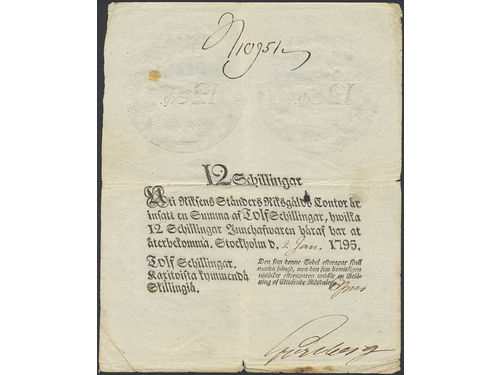 N 10951
12 Sch. 12 Sch.
12 Schillingar
Uti Riksens Ständers Riksgälds Contor är
insatt en Summa af Tolf Schillingar, hwilka
12 Schillingar Innehafwaren häraf har at
återbekomma. Stockholm d. 2 Jan. 1795.
Tolf Schillingar.
Kaxitoista kymmendä
Skillingiä.
Den som denne Sedel efterapar skall
warda hängd, men den som bewisligen
uptäcker efteraparen undfår en Belö-
ning af Ettusende Riksdaler.